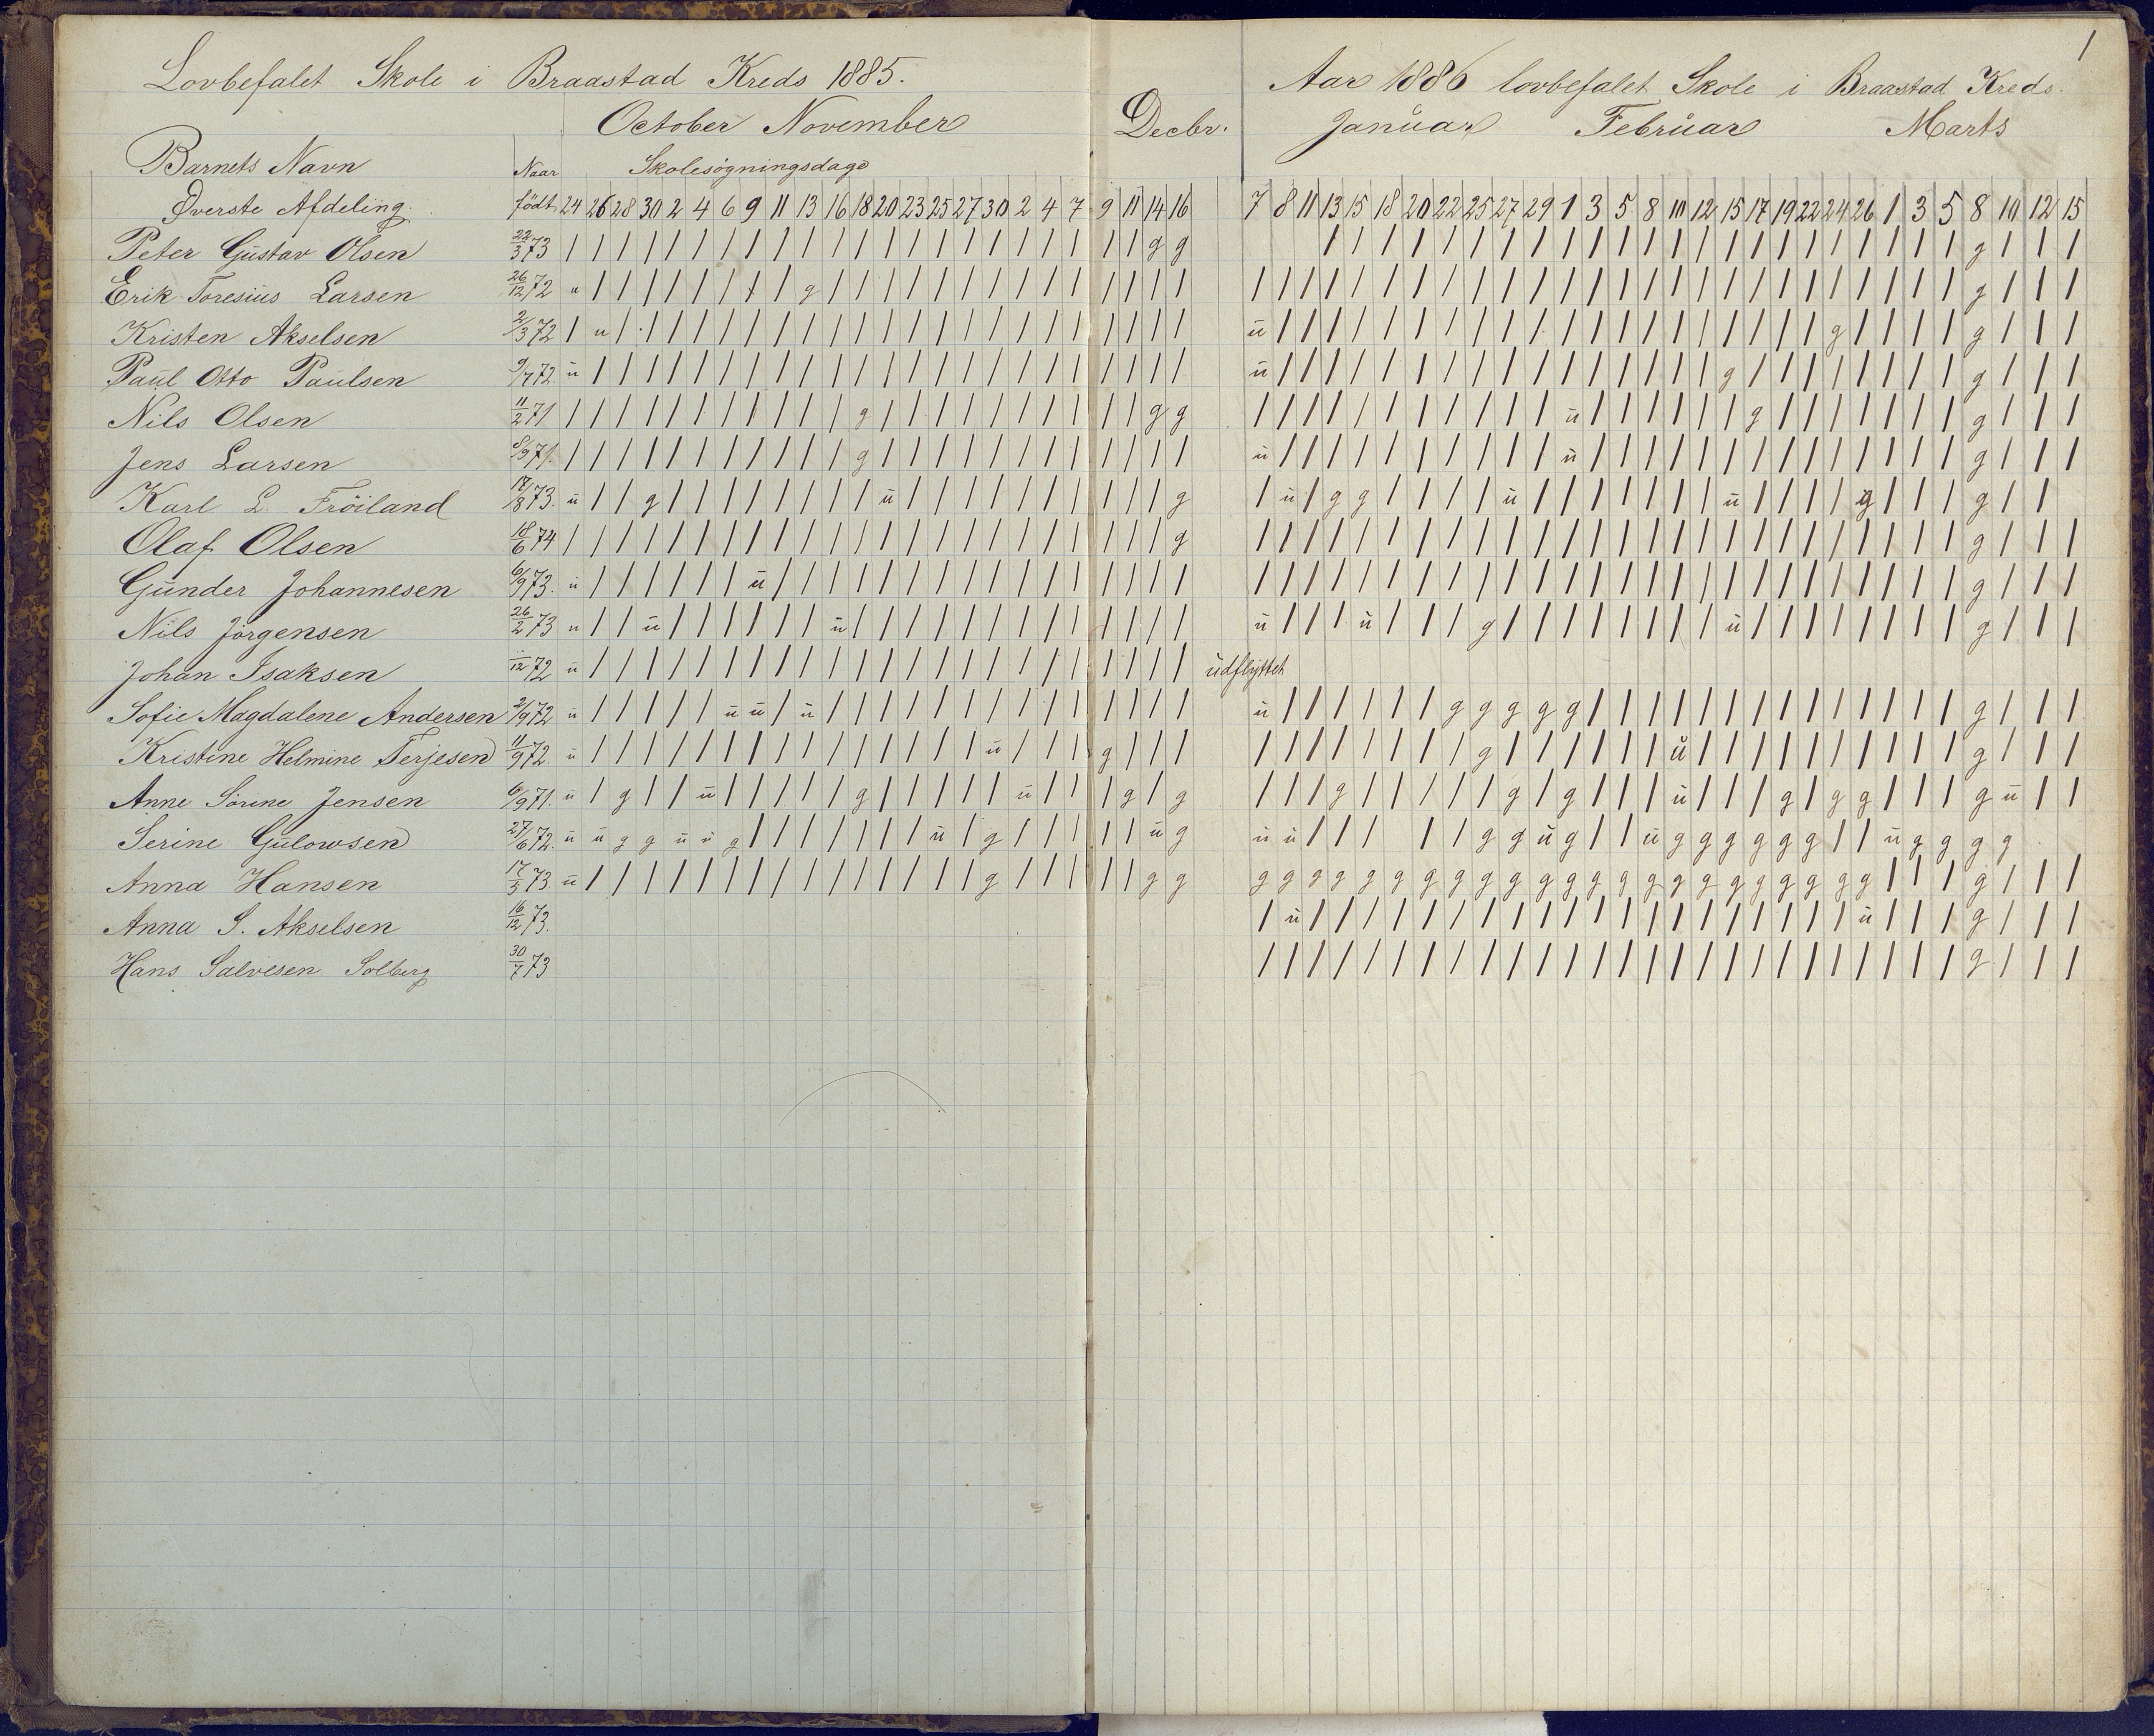 1
Lovbefalet Skole i Braastad Kreds 1885.
October November Decbr.
Barnets Navn Naar Skolesögningsdage
Øverste Afdeling. födt 24 26 28 30 2 4 6 9 11 13 16 18 20 23 25 27 30 2 4 7 9 11 14 16
Peter Gustav Olsen 22/3 73 / / / / / / / / / / / / / / / / / / / / / / g g
Erik Toresius Larsen 26/12 72
Kristen Akselsen 2/3 72
Paul Otto Paulsen 9/7 72 u / / / / / / / / / / / / / / / / / / / / / / /
Nils Olsen 11/2 71 / / / / / / / / / / / g / / / / / / / / / / g g
Jens Larsen 8/9 71. / / / / / / / / / / / g / / / / / / / / / / / /
Karl L. Fröiland 17/8 73. u / / g / / / / / / / / u / / / / / / / / / / g
Olaf Olsen 18/6 74 / / / / / / / / / / / / / / / / / / / / / / / g
Gunder Johannesen 6/9 73. u / / / / / / u / / / / / / / / / / / / / / / /
Nils Jörgensen 26/2 73 u / / u / / / / / / u / / / / / / / / / / / / /
Johan Isaksen /12 72 u / / / / / / / / / / / / / / / / / / / / / / / udflyttet
Sofie Magdalene Andersen 2/9 72 u / / / / / u u / u / / / / / / / / / / / / / /
Kristine Helmine Terjesen 11/9 72. u / / / / / / / / / / / / / / / u / / / g / / /
Anne Sörine Jensen 6/9 71. u / g / / u / / / / / g / / / / / u / / / g / g
Serine Gulowsen 27/6 72. u u g g u u g / / / / / / / u / g / / / / / u g
Anna Hansen 17/5 73 u / / / / / / / / / / / / / / / g / / / / / g g
Anna S. Akselsen 16/12 73.
Hans Salvesen Solberg 30/7 73
Aar 1886 lovbefalet Skole i Braastad Kreds.
Januar Februar Marts
7 8 11 13 15 18 20 22 25 27 29 1 3 5 8 10 12 15 17 19 22 24 26 1 3 5 8 10 12 15
/ / / / / / / / / / / / / / / / / / / / / / / g / / /
/ / / / / / / / / / / / / / / / / / / / / / / / / / g / / /
u / / / / / / / / / / / / / / / / / / / / g / / / / g / / /
u / / / / / / / / / / / / / / / / g / / / / / / / / g / / /
/ / / / / / / / / / / u / / / / / / g / / / / / / / g / / /
u / / / / / / / / / / u / / / / / / / / / / / / / / g / / /
/ u / g g / / / / u / / / / / / / u / / / / g / / / g / /
/ / / / / / / / / / / / / / / / / / / / / / / / / / g / / /
/ / / / / / / / / / / / / / / / / / / / / / / / / / g / / /
u / / / u / / / g / / / / / / / / u / / / / / / / / g / / /
u / / / / / / g g g g g / / / / / / / / / / / / / / g / / /
/ / / / / / / / g / / / / / / u / / / / / / / / / / g / / /
/ / / g / / / / / g / g / / / u / / / g / g g / / / g u / /
u u / / / / / g g u g / / u g g g g g g / / u g g g g
g g g g g g g g g g g g g g g g g g g g g g g / / / g / / /
/ u / / / / / / / / / / / / / / / / / / / / u / / / g / / /
/ / / / / / / / / / / / / / / / / / / / / / / / / / g / / /